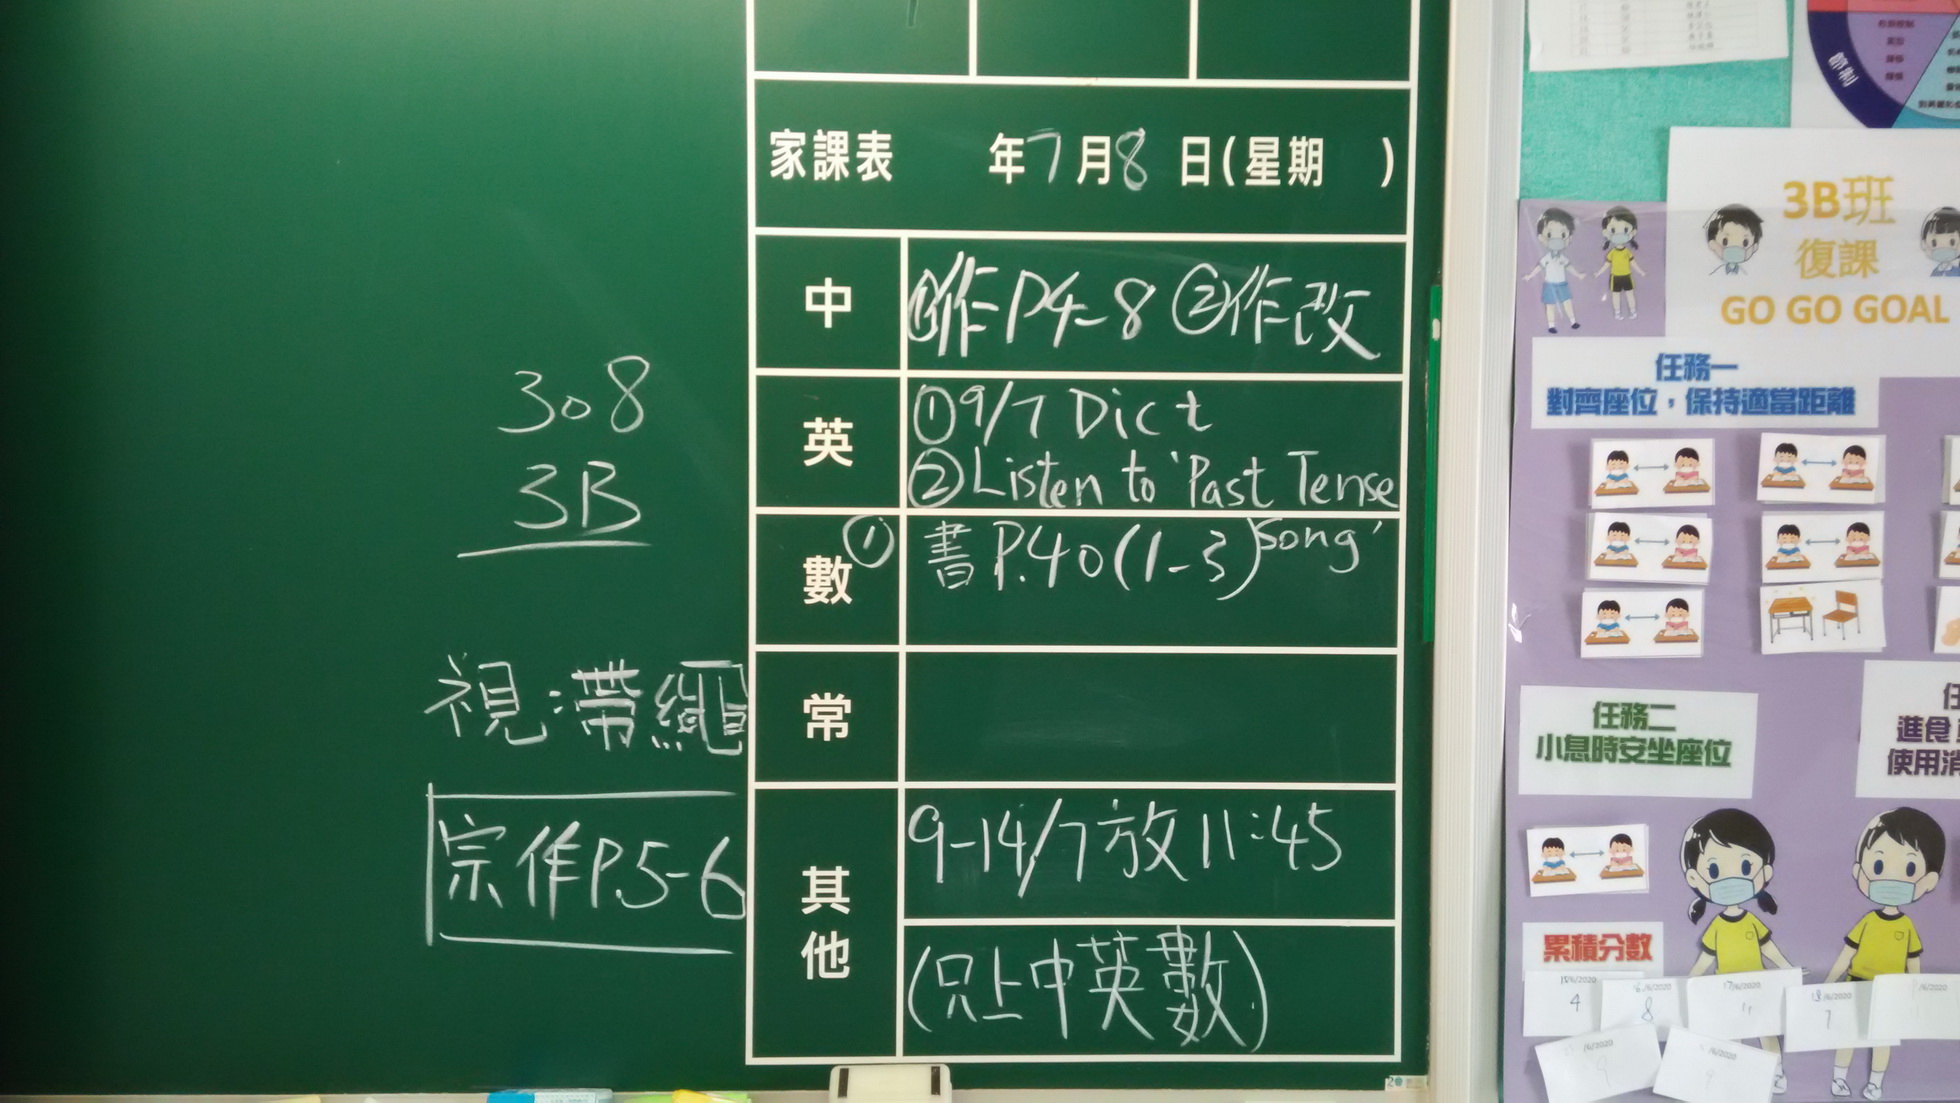 家課表 年7月8日(星期 )
中 ①作P4-8 ②作改
英 ①9/7 Dict
②Listen to 'Past Tense
song'
數 ① 書P.40(1-3)
常
其他 9-14/7放11:45
(只上中英數)
308
3B
視:帶繩
宗作P.5-6
3B班
復課
GO GO GOAL
任務一
對齊座位,保持適當距離
任務二
小息時安坐座位
進食
使用消
累積分數
4
8
11
7
9
9